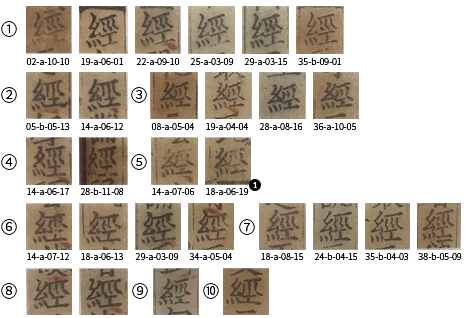 ① 經 經 經 經 經 經
02-a-10-10 19-a-06-01 22-a-09-10 25-a-03-09 29-a-03-15 35-b-09-01
② 經 經 ③ 經 經 經 經
05-b-05-13 14-a-06-12 08-a-05-04 19-a-04-04 28-a-08-16 36-a-10-05
④ 經 經 ⑤ 經 經
14-a-06-17 28-b-11-08 14-a-07-06 18-a-06-19 ❶
⑥ 經 經 經 經 ⑦ 經 經 經 經
14-a-07-12 18-a-06-13 29-a-03-09 34-a-05-04 18-a-08-15 24-b-04-15 35-b-04-03 38-b-05-09
⑧ 經 經 ⑨ 經 ⑩ 經